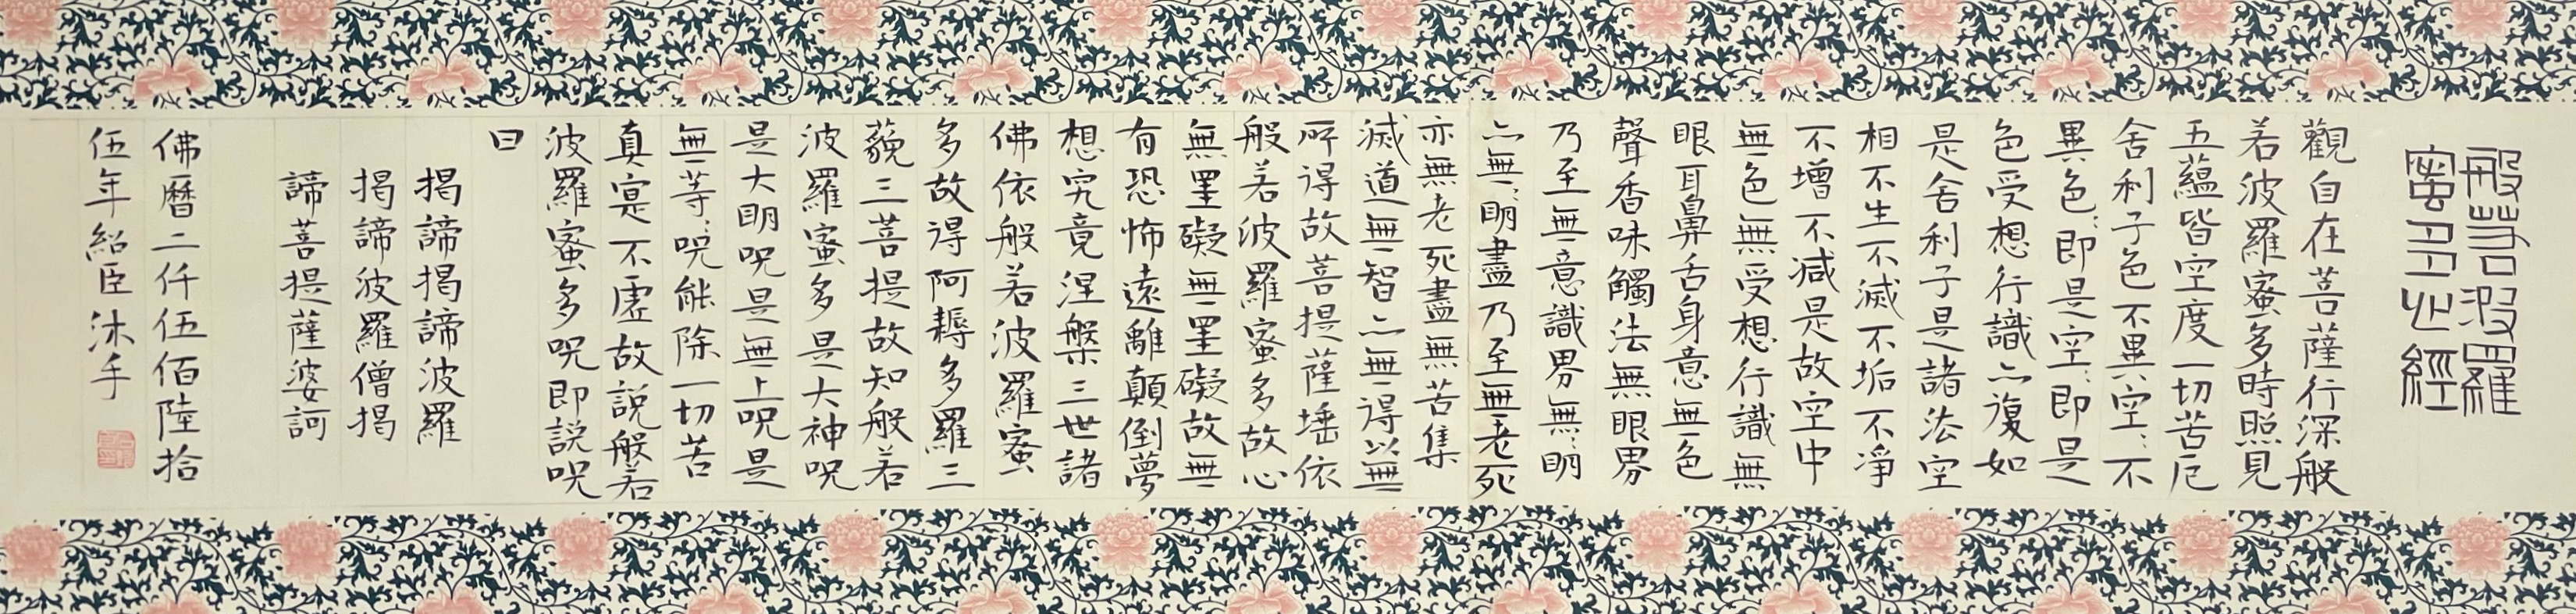 般若波羅
蜜多心經
觀自在菩薩行深般
若波羅蜜多時照見
五蘊皆空度一切苦厄
舍利子色不異空:不
異色:即是空:即是
色受想行識亦復如
是舍利子是諸法空
相不生不滅不垢不淨
不增不減是故空中
無色無受想行識無
眼耳鼻舌身意無色
聲香味觸法無眼界
乃至無意識界無:眀
亦無:眀盡乃至無老死
亦無老死盡無苦集
滅道無智亦無得以無
所得故菩提薩埵依
般若波羅蜜多故心
無罣礙無罣礙故無
有恐怖遠離顛倒夢
想究竟涅槃三世諸
佛依般若波羅蜜
多故得阿耨多羅三
藐三菩提故知般若
波羅蜜多是大神呪
是大眀呪是無上呪是
無等:呪能除一切苦
真寔不虛故説般若
波羅蜜多呪即説呪
曰
揭諦揭諦波羅
揭諦波羅僧揭
諦菩提薩婆訶
佛曆二仟伍佰陸拾
伍年紹臣沐手